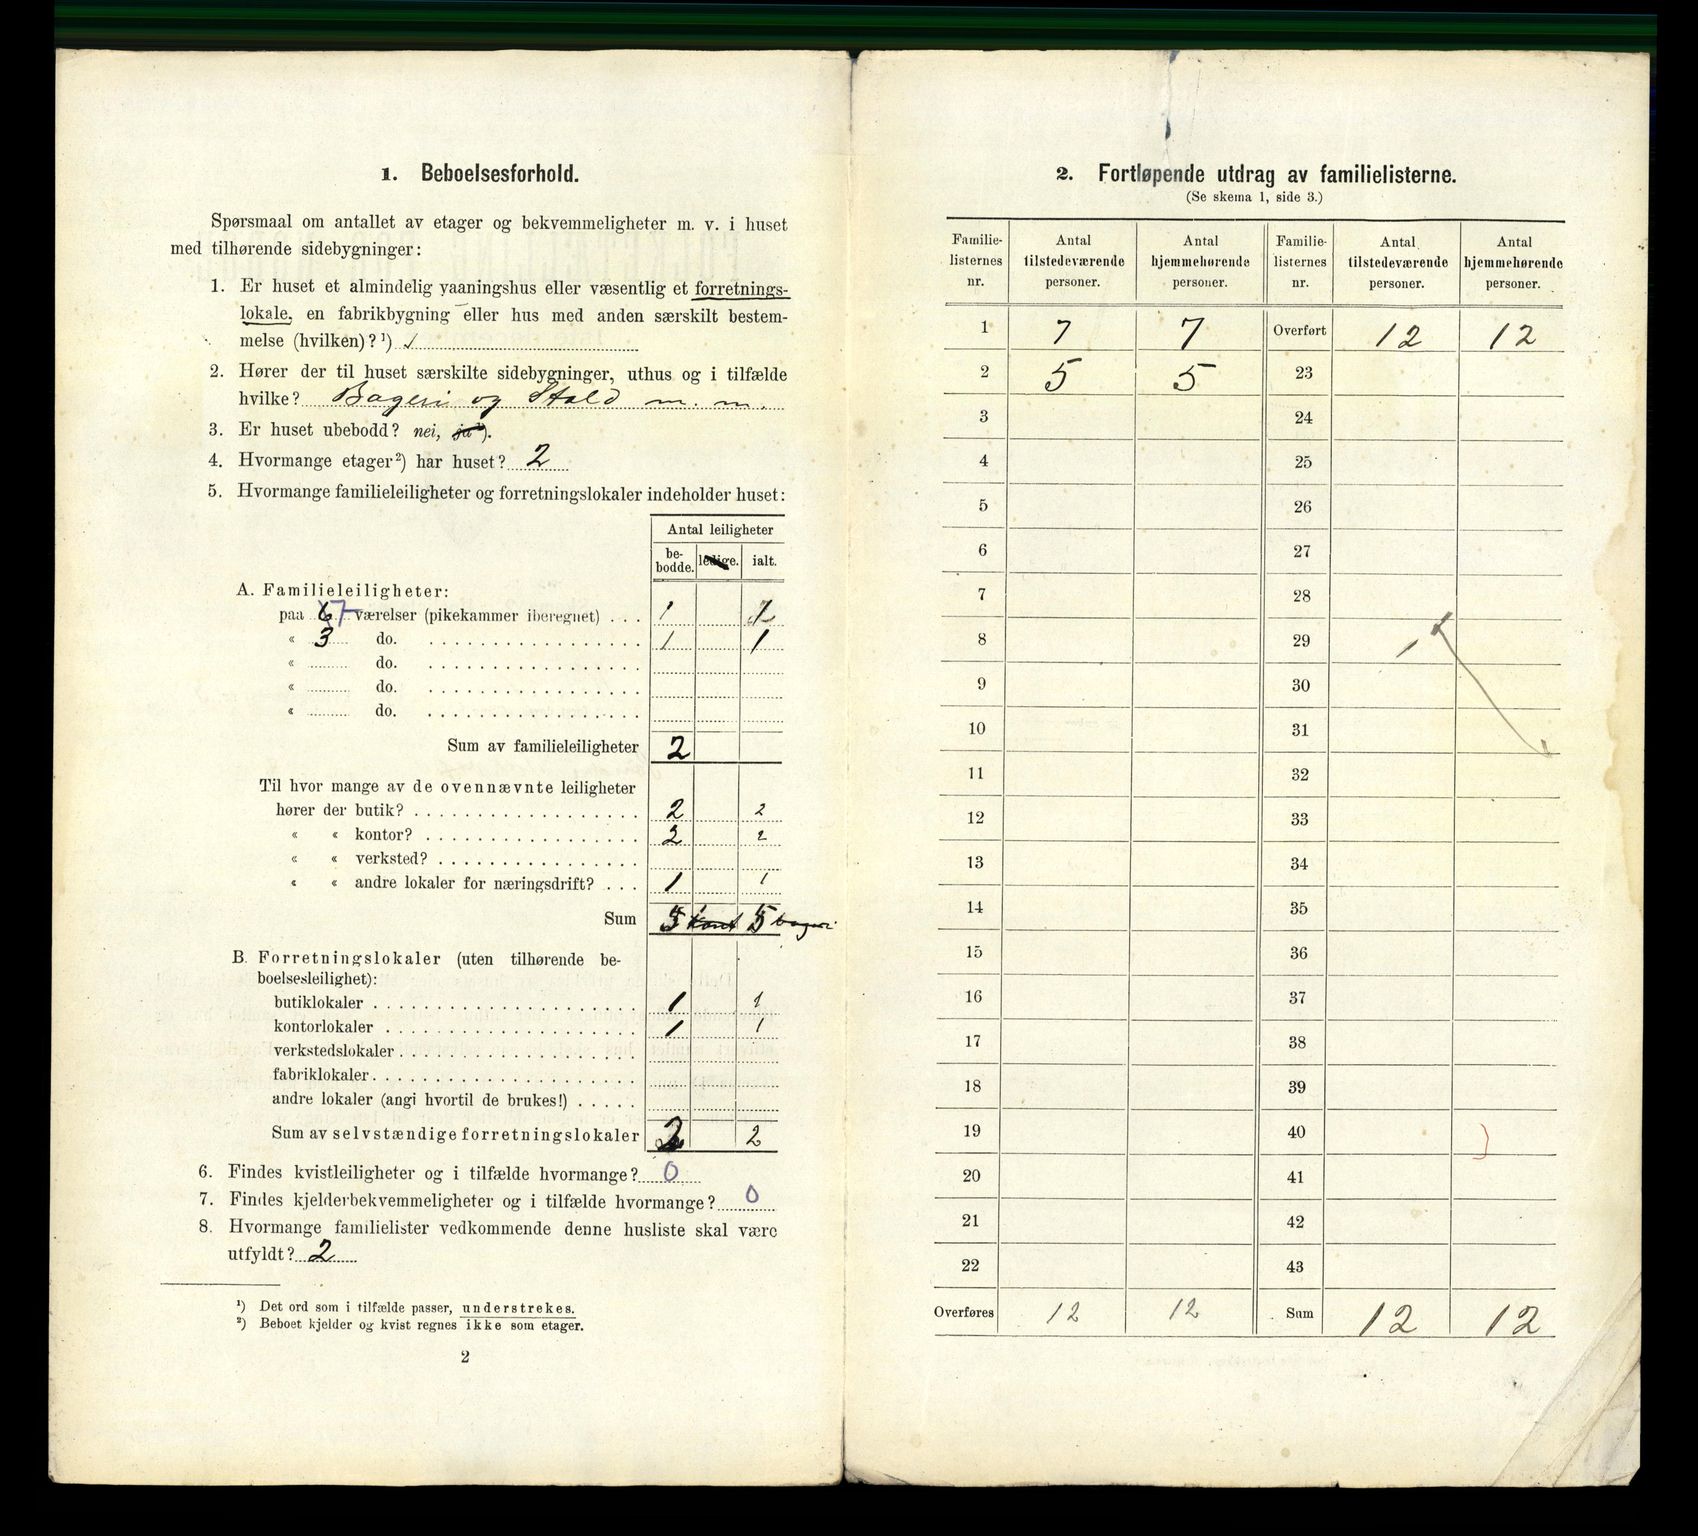 1. Beboelsesforhold.
Spørsmaal om antallet av etager og bekvemmeligheter m. v. i huset
med tilhørende sidebygninger:
1. Er huset et almindelig vaaningshus eller væsentlig et forretnings-
lokale, en fabrikbygning eller hus med anden særskilt bestem-
melse (hvilken)?¹)
2. Hører der til huset særskilte sidebygninger, uthus og i tilfælde
hvilke? Bageri og Stald m. m.
3. Er huset ubebodd? nei, ja¹).
4. Hvormange etager²) har huset? 2
5. Hvormange familieleiligheter og forretningslokaler indeholder huset:
Antal leiligheter
be-
bodde. ledige. ialt.
A. Familieleiligheter:
paa 6 7 værelser (pikekammer iberegnet) . . . 1 1
« 3 do. . . . . . . . . . . . . . . . . . 1 1
« do. . . . . . . . . . . . . . . . . .
« do. . . . . . . . . . . . . . . . . .
« do. . . . . . . . . . . . . . . . . .
Sum av familieleiligheter 2
Til hvor mange av de ovennævnte leiligheter
hører der butik? . . . . . . . . . . . . . . . . . . 2 2
« « kontor? . . . . . . . . . . . . . . . . . 2 2
« « verksted? . . . . . . . . . . . . . . . .
« « andre lokaler for næringsdrift? . . . 1 1
Sum 5 kont 5 bageri
B. Forretningslokaler (uten tilhørende be-
boelsesleilighet):
butiklokaler . . . . . . . . . . . . . . . . . . . . 1 1
kontorlokaler . . . . . . . . . . . . . . . . . . . 1 1
verkstedslokaler . . . . . . . . . . . . . . . . . .
fabriklokaler . . . . . . . . . . . . . . . . . . . .
andre lokaler (angi hvortil de brukes!) . . . . .
Sum av selvstændige forretningslokaler 2 2
6. Findes kvistleiligheter og i tilfælde hvormange? 0
7. Findes kjelderbekvemmeligheter og i tilfælde hvormange? 0
8. Hvormange familielister vedkommende denne husliste skal være
utfyldt? 2
¹) Det ord som i tilfælde passer, understrekes.
²) Beboet kjelder og kvist regnes ikke som etager.
2
2. Fortløpende utdrag av familielisterne.
(Se skema 1, side 3.)
Familie- Antal Antal Familie- Antal Antal
listernes tilstedeværende hjemmehørende listernes tilstedeværende hjemmehørende
nr. personer. personer. nr. personer. personer.
1 7 7 Overført 12 12
2 5 5 23
3 24
4 25
5 26
6 27
7 28
8 29
9 30
10 31
11 32
12 33
13 34
14 35
15 36
16 37
17 38
18 39
19 40
20 41
21 42
22 43
Overføres 12 12 Sum 12 12